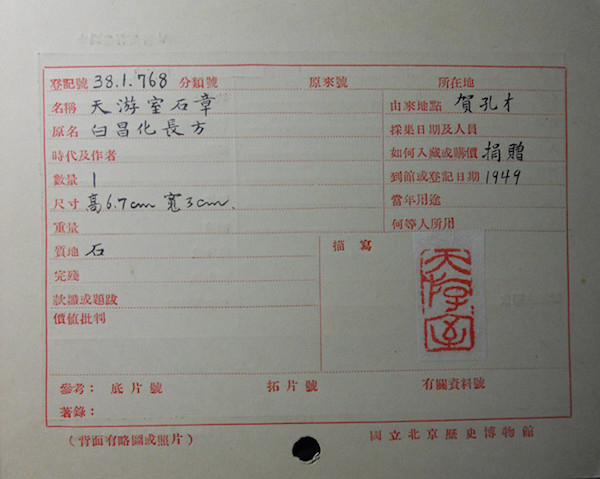 登記號 38.1.768 分類號 原來號 所在地
名稱 天游室石章 由來地點 賀孔才
原名 白昌化長方 採集日期及人員
時代及作者 如何入藏或購價 捐贈
數量 1 到館或登記日期 1949
尺寸 高6.7cm 寬3cm. 當年用途
重量 何等人所用
質地 石 描寫
完殘
天游室
款識或題跋
價值批判
參考: 底片號 拓片號 有關資料號
著錄:
(背面有略圖或照片) 國立北京歷史博物館